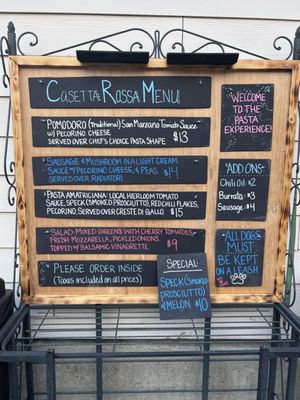 Casetta Rossa Menu
Pomodoro (Traditional) San Marzano Tomato Sauce
w/ Pecorino Cheese
Served over Chef's Choice Pasta Shape $13
Sausage & Mushroom in a Light Cream
Sauce w/ Pecorino Cheese & Peas $14
Served over Radiatori
Pasta Amatriciana: Local Heirloom Tomato
Sauce, Speck (Smoked Prosciutto), Red Chili Flakes,
Pecorino. Served over Creste Di Gallo $15
Salad: Mixed Greens with Cherry Tomatoes,
Fresh Mozzarella, Pickled Onions.
Topped w/ Balsamic Vinaigrette $9
Please Order Inside
(Taxes included on all prices)
Special
Speck (Smoked
Prosciutto)
& Melon $10
Welcome
to the
Pasta
Experience!
Add Ons:
Chili Oil $2
Burrata $3
Sausage $4
All Dogs
Must Be
Kept on
a Leash